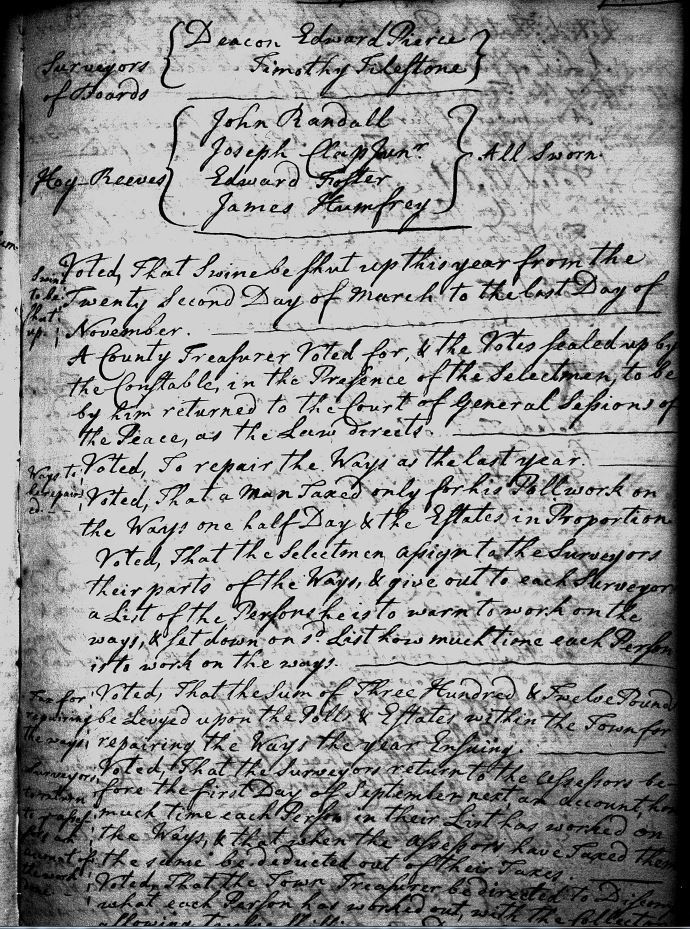 Deacon Edward Pierce
Timothy Tilestone
Surveyors
of Boards
John Randall
Joseph Clap Junr.
Edward Foster
James Humfrey
Hog-Reeves
All Sworn.
Swine
to be
shut
up.
Voted, That Swine be shut up this year from the
Twenty Second Day of March to the last Day of
November.
A County Treasurer Voted for, & the Votes sealed up by
the Constable, in the Presence of the Selectmen, to be
by him returned to the Court of General Sessions of
the Peace, as the Law directs.
Ways to
be repair
ed.
Voted, To repair the Ways as the last year.
Voted, That a Man Taxed only for his Poll work on
the Ways one half Day & the Estates in Proportion
Voted, That the Selectmen assign to the Surveyors
their parts of the Ways, & give out to each Surveyor
a List of the Persons he is to warn to work on the
ways, & set down on sd. List how much time each Person
is to work on the ways.
Tax for
repairing
the ways
Voted, That the Sum of Three Hundred & Twelve Pounds
be Levyed upon the Polls & Estates within the Town for
repairing the Ways the year Ensuing.
Surveyors
to return
Voted, That the Surveyors return to the Assessors be-
fore the first Day of September next, an account, how
much time each Person in their List has worked on
the Ways, & that when the Assessors have Taxed them
the same be deducted out of their Taxes.
Voted, That the Town Treasurer be directed to
what each Person has worked out, with the